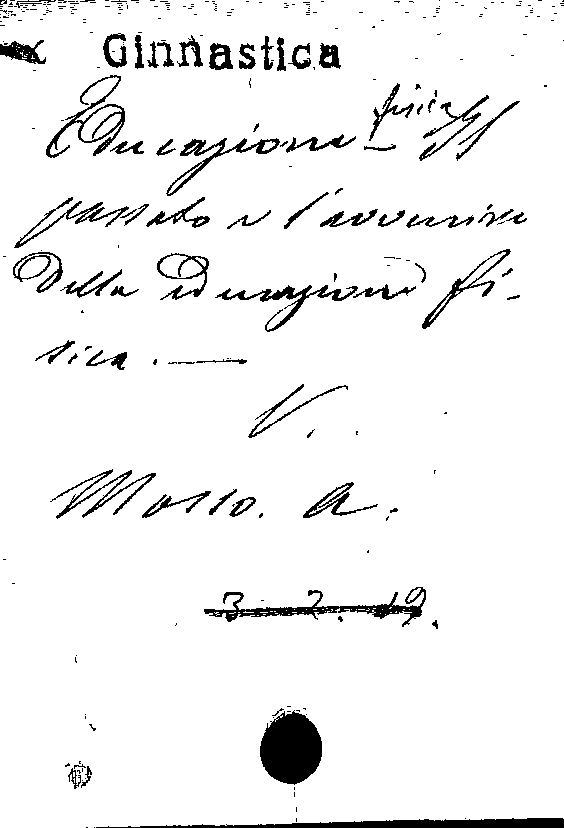 Ginnastica
Educazione fisica Il
passato e l'avvenire
della educazione fi-
sica. —
V.
Mosso. A.
3 2. 19.